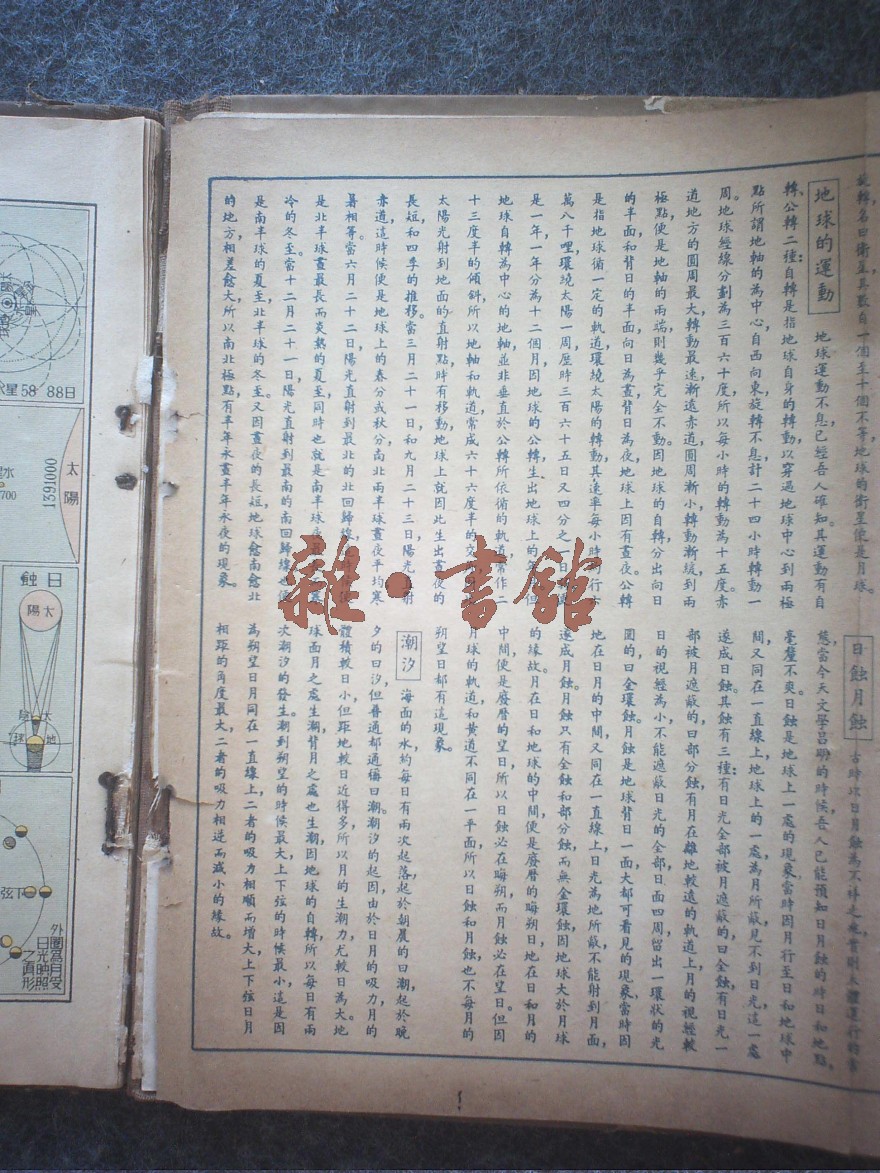 旋轉名曰衛星其數自一個至十個不等地球的衛星便是月球。
地球的運動
地球運動不息,已經吾人確知其運動有自
轉、公轉二種:自轉是指地球自身的轉動,以穿過地球中心到兩極
點所謂地軸的為中心,自西向東,旋轉不息,計二十四小時轉動一
周。地球經線分劃為三百六十度,所以每小時的轉動為十五度。赤
道地方的圓周最大,轉動最速,漸遠赤道,圓周漸小,轉動漸緩,到兩
極點便是地軸的兩端,則幾乎完全不動。因地球的自轉,分出向日
的半面和背日的半面,向日為晝,背日為夜,地球上因有晝夜。公轉
是指地球循一定的軌道,環繞太陽的轉動,其速率每小時約行六
萬八千哩,環繞太陽一周,歷時三百六十五日又四分之一日,便
是一年,一年分為十二個月,因地球的公轉,生出地球上的年,但
地球自轉為中心的地軸,並非垂直於公轉所依循的軌道,常作二
十三度半的傾斜,所以地軸和軌道常成六十六度半的交角,因此
太陽光射到地面的直射點時有移動,地球上就因此生出晝夜的
長短和四季的推移。當三月二十一日和九月二十三日,陽光直射
赤道,這時候便是地球上的春分或秋分,南北兩半球晝夜平均,寒
暑相等;當六月二十二日,陽光直射到最北的北回歸線,
是北半球晝最長而炎熱的夏至,同時也就是南半球
冷的冬至。當十二月二十一日,陽光直射到最南的南回歸線,也便
是南半球的夏至,北半球的冬至。又因晝夜的長短,地球愈南愈北
的地方,相差愈大,所以南北極點有半年永晝半年永夜的現象。
日蝕月蝕
古時以日月蝕為不祥之兆,實則天體運行的常
態,當今天文學昌明的時候,吾人已能預知日月蝕的時日和地點,
毫釐不爽。日蝕是地球上一處的現象,當時因月行至日和地球中
間,又同在一直線上,地球上的一處,為月所蔽,見不到日光,這一處
遂成日蝕。其蝕有三種:有日光全部被月遮蔽的,曰全蝕,有日光一
部被月遮蔽的,曰部分蝕,有月在離地較遠的軌道上,月的視徑較
日的視徑為小,不能遮蔽日光的全部,日面四周留出一環狀的光
圈的,曰金環蝕。月蝕是地球背日一面大都可看見的現象,當時因
地在日月的中間,又同在一直線上,日光為地所蔽,不能射到月面,
遂成月蝕。月蝕只有全蝕和部分蝕,而無金環蝕,因地球大於月球
的緣故。月在日和地球的中間,便是廢曆的晦朔日,地在日和月的
中間,便是廢曆的望日,所以日蝕必在晦朔,而月蝕必在望日。但因
月球的軌道和黃道不同在一平面,所以日蝕和月蝕,也不每月的
朔望日都有這現象。
潮汐
海面的水,約每日有兩次起落,起於朝晨的曰潮,起於晚
夕的曰汐,但普通都通稱曰潮。潮汐的起因,由於日月的吸力,月的
體積較日小,但距地較日近得多,所以月的生潮力,尤較日為大。地
球面月之處生潮,背月之處也生潮,因地球的自轉,所以每日有兩
次潮汐的發生。潮到朔望的時候最大,上下弦的時候最小,這是因
為朔望日月同在一直線上,二者的吸力相順而增大,上下弦日月
相距的角度最大,二者的吸力相逆而減小的緣故。
星58 88日
太陽
1391000
700
日蝕
太陽
太陰
地球
下弦
外圈為月受
日光映照
之真形
雜·書館